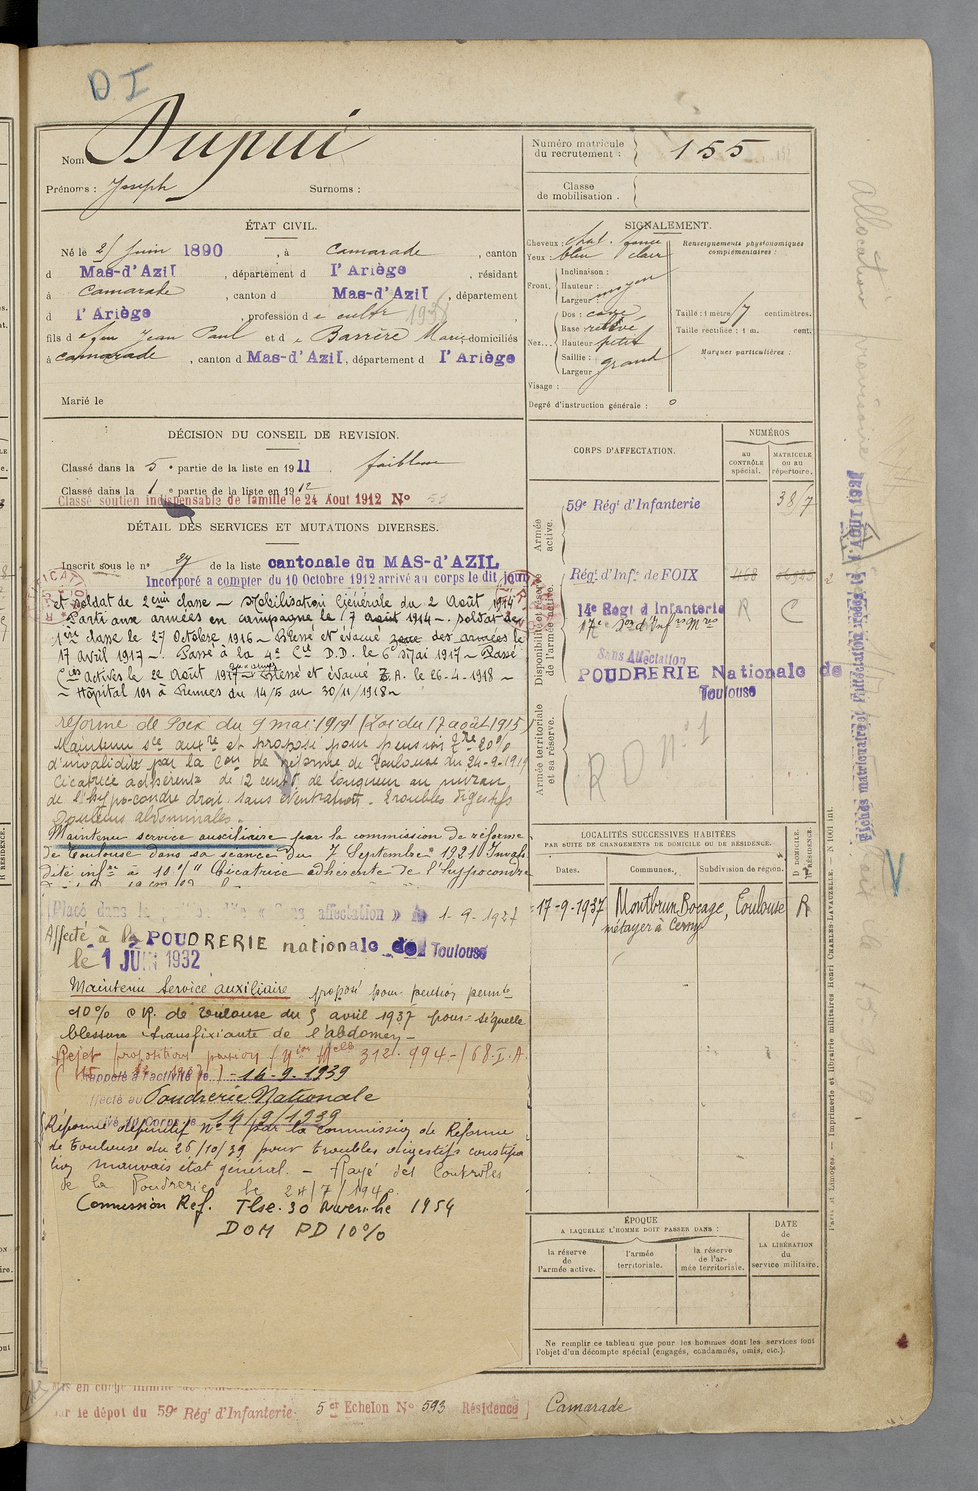 D I
Nom Dupui
Prénoms : Joseph Surnoms :
Numéro matricule du recrutement : 155
Classe de mobilisation :
ÉTAT CIVIL.
Né le 25 Juin 1890, à Camarade, canton
d Mas-d'Azil, département d l'Ariège, résidant
à Camarade, canton d Mas-d'Azil, département
d l'Ariège, profession d e cultr
fils d e feu Jean Paul et d e Barrère Marie domiciliés
à camarade, canton d Mas-d'Azil, département d l'Ariège
Marié le
SIGNALEMENT.
Cheveux : chat. foncé
Yeux : bleu clair
Front,
Inclinaison :
Hauteur :
Largeur : moyen
Nez...
Dos : cave
Base : relevé
Hauteur : petit
Saillie :
Largeur : grand
Visage :
Degré d'instruction générale : 0
Renseignements physionomiques complémentaires :
Taille : 1 mètre 57 centimètres.
Taille rectifiée : 1 m. cent.
Marques particulières :
DÉCISION DU CONSEIL DE REVISION.
Classé dans la 5e partie de la liste en 1911. faiblesse
Classé dans la 1e partie de la liste en 1912
Classé soutien indispensable de famille le 24 Aout 1912 No
DÉTAIL DES SERVICES ET MUTATIONS DIVERSES.
Inscrit sous le no 27 de la liste cantonale du MAS-d'AZIL
Incorporé a compter du 10 Octobre 1912 arrivé au corps le dit jour
et soldat de 2eme classe – Mobilisation Générale du 2 Août 1914
Parti aux armées en campagne le 17 août 1914 –. soldat de
1ère classe le 27 Octobre 1916 – Blessé et évacué zone des armées le
17 Avril 1917 –. Passé à la 4e Cie D.D. le 6 Mai 1917 – Passé
Cies Actives le 22 Août 1917 – aux armées Blessé et évacué Z.A. le 26-4-1918 –
– Hôpital 101 à Rennes du 14/5 au 30/11/1918 –
réforme de Foix du 9 mai 1919 (Loi du 17 août 1915)
Maintenu sce auxre et proposé pour pension Tre 20%
d'invalidité par la Con de réforme de Toulouse du 24-9-1919
Cicatrice adhérente de 12 centes de longueur au niveau
de l'hypocondre droit, sans éventration. Troubles digestifs
Douleurs abdominales.
Maintenu service auxiliaire par la commission de réforme
de Toulouse dans sa séance du 7 Septembre 1921 Invali
dité infre à 10% Cicatrice adhérente de l'hypocondre
Placé dans la position dite « Sans affectation » le 1-9-1927
Affecté à la POUDRERIE nationale de Toulouse
le 1 JUIN 1932
Maintenu Service auxiliaire proposé pour pension permte
10% CR. de Toulouse du 5 avril 1937 pour : séquelle
blessure transfixiante de l'abdomen –
Rejet proposition pension (Mion Melle 312.994 – 168.I.A.
Rappelé à l'activité le 14-9-1939
Affecté au Poudrerie Nationale
Arrivé au Corps le 14/9/1939
Réformé définitif No 1 par la Commission de Réforme
de Toulouse du 26/10/39 pour troubles digestifs constipa
tion mauvais état général. – Rayé des Contrôles
de la Poudrerie le 24/7/1940.
Commission Ref. Tlse. 30 Novembre 1954
DOM PD 10%
CORPS D'AFFECTATION.
NUMÉROS
au CONTRÔLE spécial.
MATRICULE OU AU répertoire.
Armée active.
59e Régt d'Infanterie 3817
Disponibilité et réserve de l'armée active.
Régt d'Infie de FOIX 1168
14e Regt d Infanterie R C
Sans Affectation
POUDRERIE Nationale de
Toulouse
Armée territoriale et sa réserve.
R D No 1
LOCALITÉS SUCCESSIVES HABITÉES
PAR SUITE DE CHANGEMENTS DE DOMICILE OU DE RÉSIDENCE.
Dates. Communes. Subdivision de région. D DOMICILE. R RÉSIDENCE.
17-9-1937 Montbrun Bocage, Toulouse R
métayer à Cerny
ÉPOQUE
A LAQUELLE L'HOMME DOIT PASSER DANS :
la réserve de l'armée active.
l'armée territoriale.
la réserve de l'armée territoriale.
DATE de LA LIBÉRATION du service militaire.
Ne remplir ce tableau que pour les hommes dont les services font
l'objet d'un décompte spécial (engagés, condamnés, omis, etc.).
sur le dépot du 59e Régt d'Infanterie 5er Echelon No 593 Résidence Camarade
Paris et Limoges. — Imprimerie et librairie militaires Henri CHARLES-LAVAUZELLE.